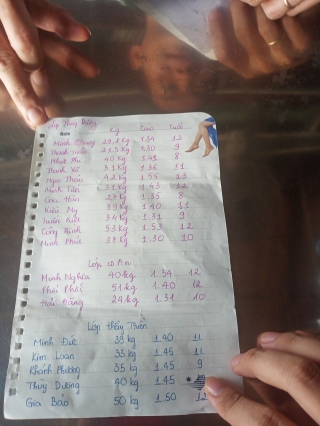 Lớp Thầy
Kg Cao Tuổi
Minh 29,2 kg 1.34 12
Thanh 21.5 kg 1.30 9
Nhật 40 kg 1.41 8
Thanh 31 kg 1.36 11
Ngọc 42 kg 1.55 13
Minh 31 kg 1.43 12
Gia Hân 27 kg 1.35 8
Kiều My 39 kg 1.40 11
Tuấn Kiệt 34 kg 1.31 9
Công Minh 53 kg 1.53 12
Minh Phúc 37 kg 1.30 10
Lớp cô An
Minh Nghĩa 40 kg 1.34 12
Phôi Phôi 51 kg 1.40 12
Hải Đăng 24 kg 1.31 10
Lớp thầy Thuần
Minh Đức 39 kg 1.40 11
Kim Loan 35 kg 1.45 11
Khánh Phương 35 kg 1.45 9
Thuỳ Dương 40 kg 1.45
Gia Bảo 50 kg 1.50 12